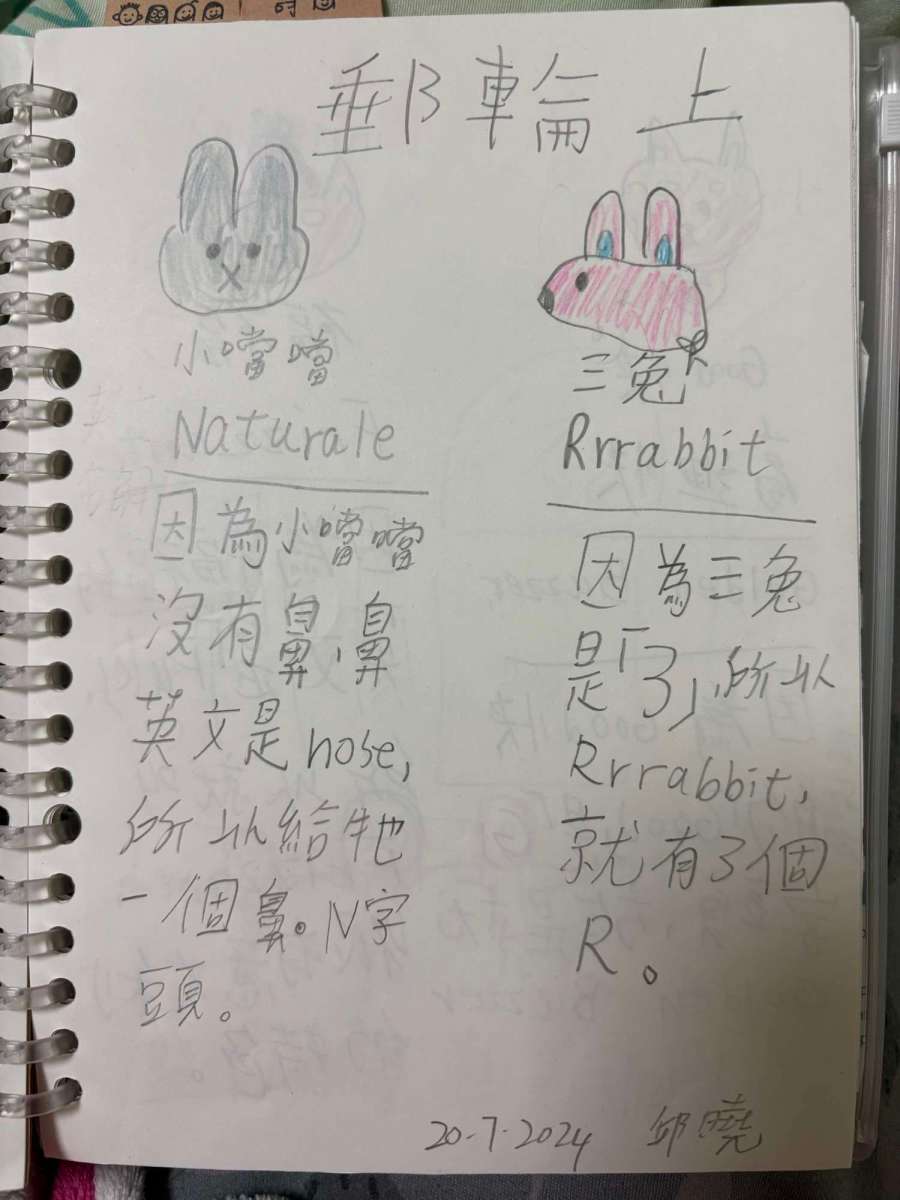 郵輪上
小噹噹
Naturale
因為小噹噹
沒有鼻,鼻
英文是nose,
所以給牠
一個鼻。N字
頭。
三兔
Rrrabbit
因為三兔
是「3」,所以
Rrrabbit,
就有3個
R。
20-7-2024 邱曉